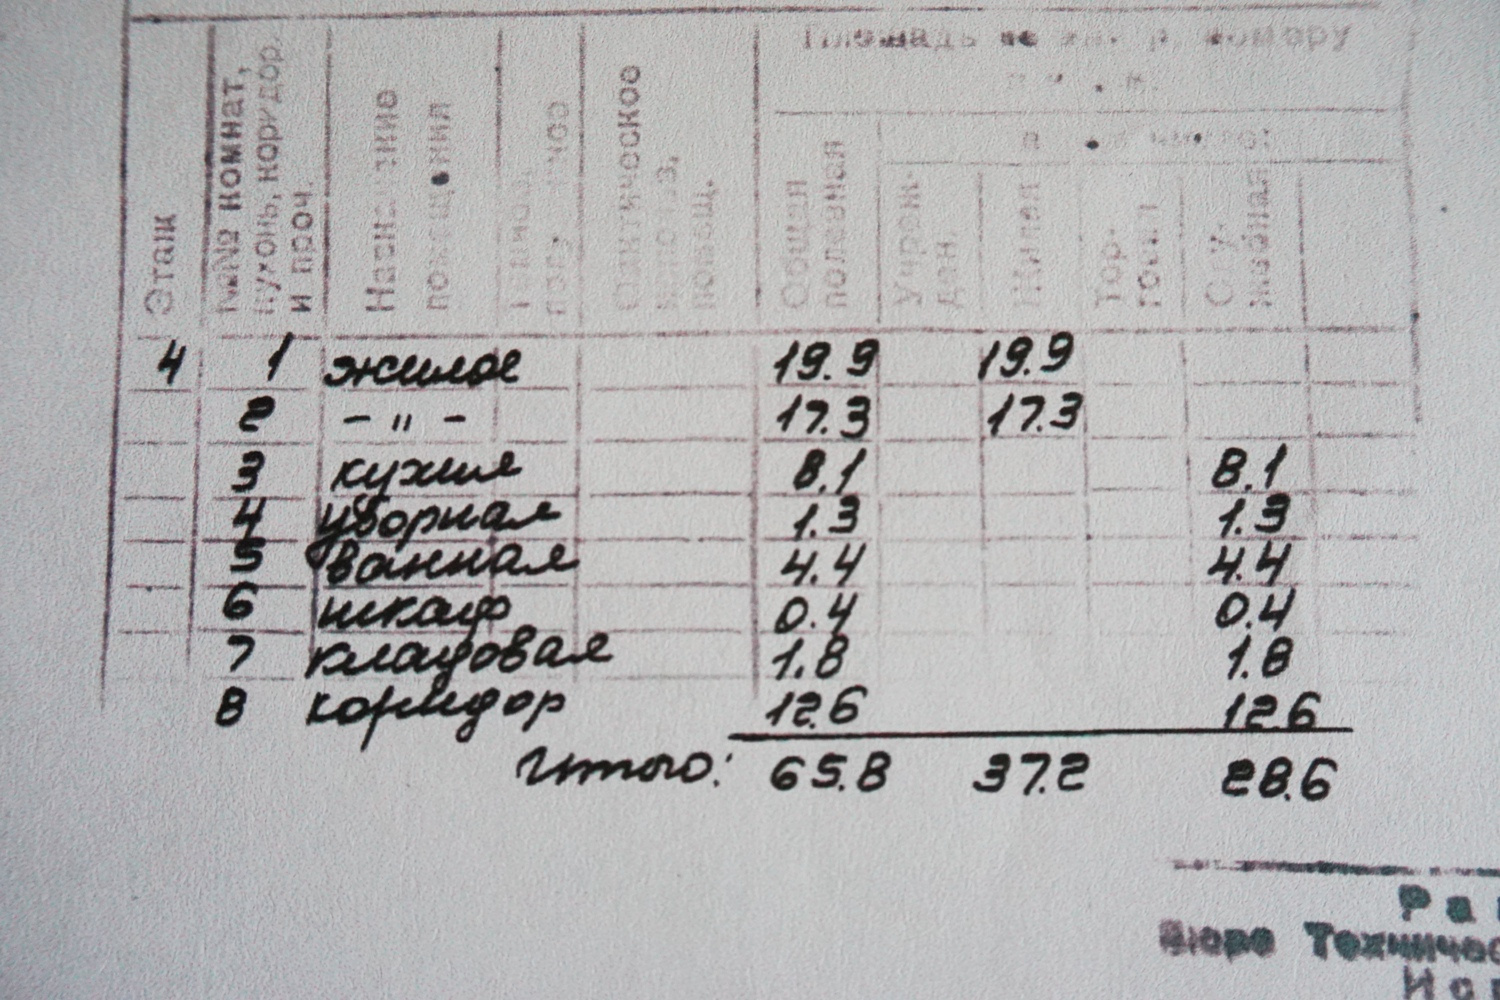 Площадь по вн. р. номеру
в том числе:
Этаж
№№ комнат, кухонь, коридор. и проч.
Название помещения
Фактическое помещ.
Общая полезная
Учреж- ден.
Жилая
Тор- говая
Слу- жебная
4 1 жилое 19.9 19.9
2 - " - 17.3 17.3
3 кухня 8.1 8.1
4 уборная 1.3 1.3
5 ванная 4.4 4.4
6 шкаф 0.4 0.4
7 кладовая 1.8 1.8
8 коридор 12.6 12.6
Итого: 65.8 37.2 28.6
Ра
Бюро Техничес